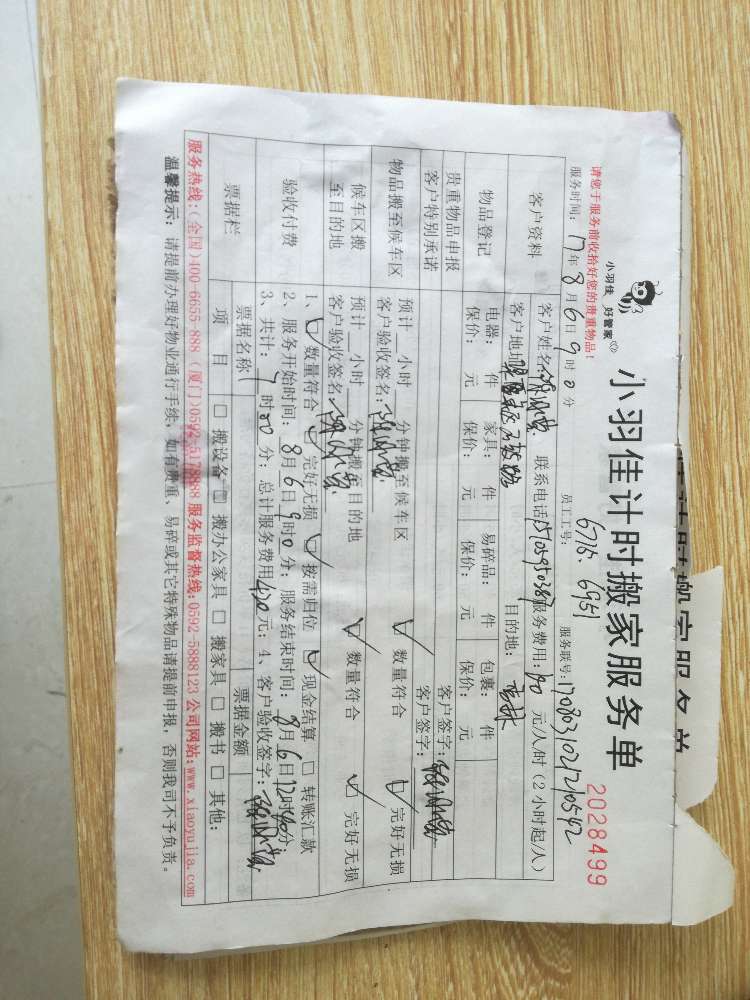 小羽佳 好管家
小羽佳计时搬家服务单
2028499
请您于服务前收拾好您的贵重物品!
服务时间: 17年8月6日9时0分 员工工号: 6715、6951 服务联号:
客户资料 客户姓名: 联系电话: 服务费用: 元/人/时 (2小时起/人)
客户地址: 目的地:
物品登记 电器: 件 家具: 件 易碎品: 件 包裹: 件
保价: 元 保价: 元 保价: 元 保价: 元
贵重物品申报 客户签字:
客户特别承诺 客户签字:
物品搬至候车区 预计 小时 分钟搬至候车区 ☑ 数量符合 ☑ 完好无损
客户验收签名:
候车区搬至目的地 预计 小时 分钟搬至目的地 ☑ 数量符合 ☑ 完好无损
客户验收签名:
验收付费 1、☑ 数量符合 ☑ 完好无损 ☑ 按需归位 ☑ 现金结算 □ 转账汇款
2、服务开始时间: 8月6日9时0分; 服务结束时间: 8月6日12时40分
3、共计: 时 分; 总计服务费用 元; 4、客户验收签字:
票据栏 票据名称 票据金额
项目 □ 搬设备 □ 搬办公家具 □ 搬家具 □ 搬书 □ 其他:
服务热线:(全国)400-6655-888 (厦门)0592-5178888 服务监督热线:0592-5888123 公司网站:www.xiaoyujia.com
温馨提示: 请提前办理好物业通行手续, 如有贵重、易碎或其它特殊物品请提前申报, 否则我司不予负责。